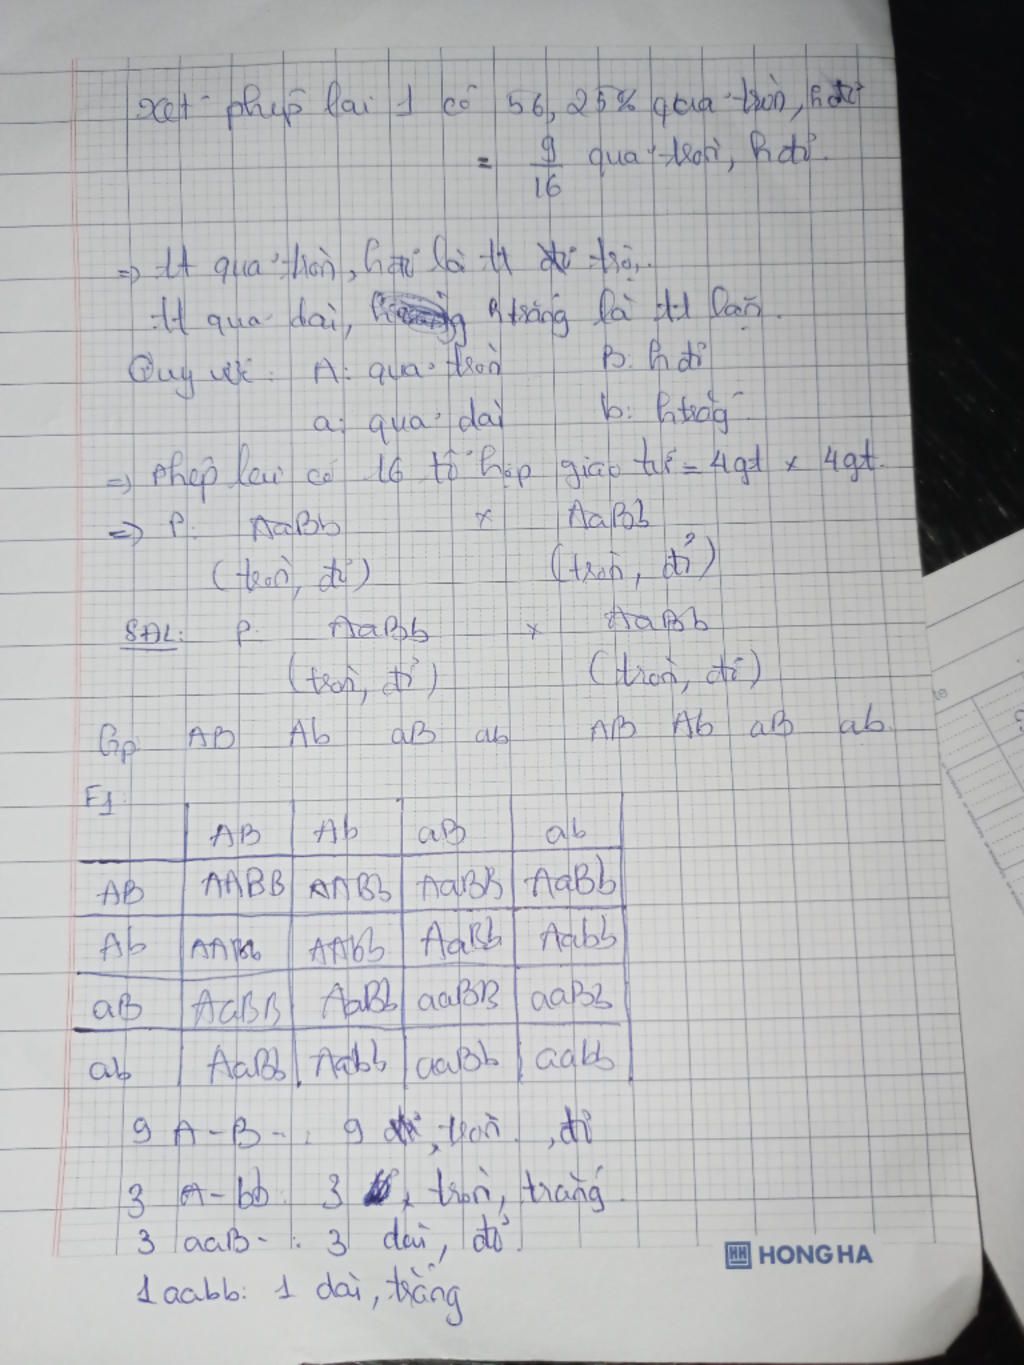 Xét phép lai 1 có 56,25% quả tròn, h đỏ
= 9/16 quả tròn, h đỏ.
=> tt quả tròn, h đỏ là tt trội.
tt quả dài, h trắng là tt lặn.
Quy ước: A: quả tròn B: h đỏ
a: quả dài b: h trắng
=> phép lai có 16 tổ hợp giao tử = 4gt x 4gt.
=> P: AaBb x AaBb
(tròn, đỏ) (tròn, đỏ)
SĐL: P: AaBb x AaBb
(tròn, đỏ) (tròn, đỏ)
Gp AB Ab aB ab AB Ab aB ab
F1:
AB Ab aB ab
AB AABB AABb AaBB AaBb
Ab AABb AAbb AaBb Aabb
aB AaBB AaBb aaBB aaBb
ab AaBb Aabb aaBb aabb
9 A-B-: 9 tròn, đỏ
3 A-bb: 3 tròn, trắng
3 aaB-: 3 dài, đỏ.
HH HONG HA
1 aabb: 1 dài, trắng